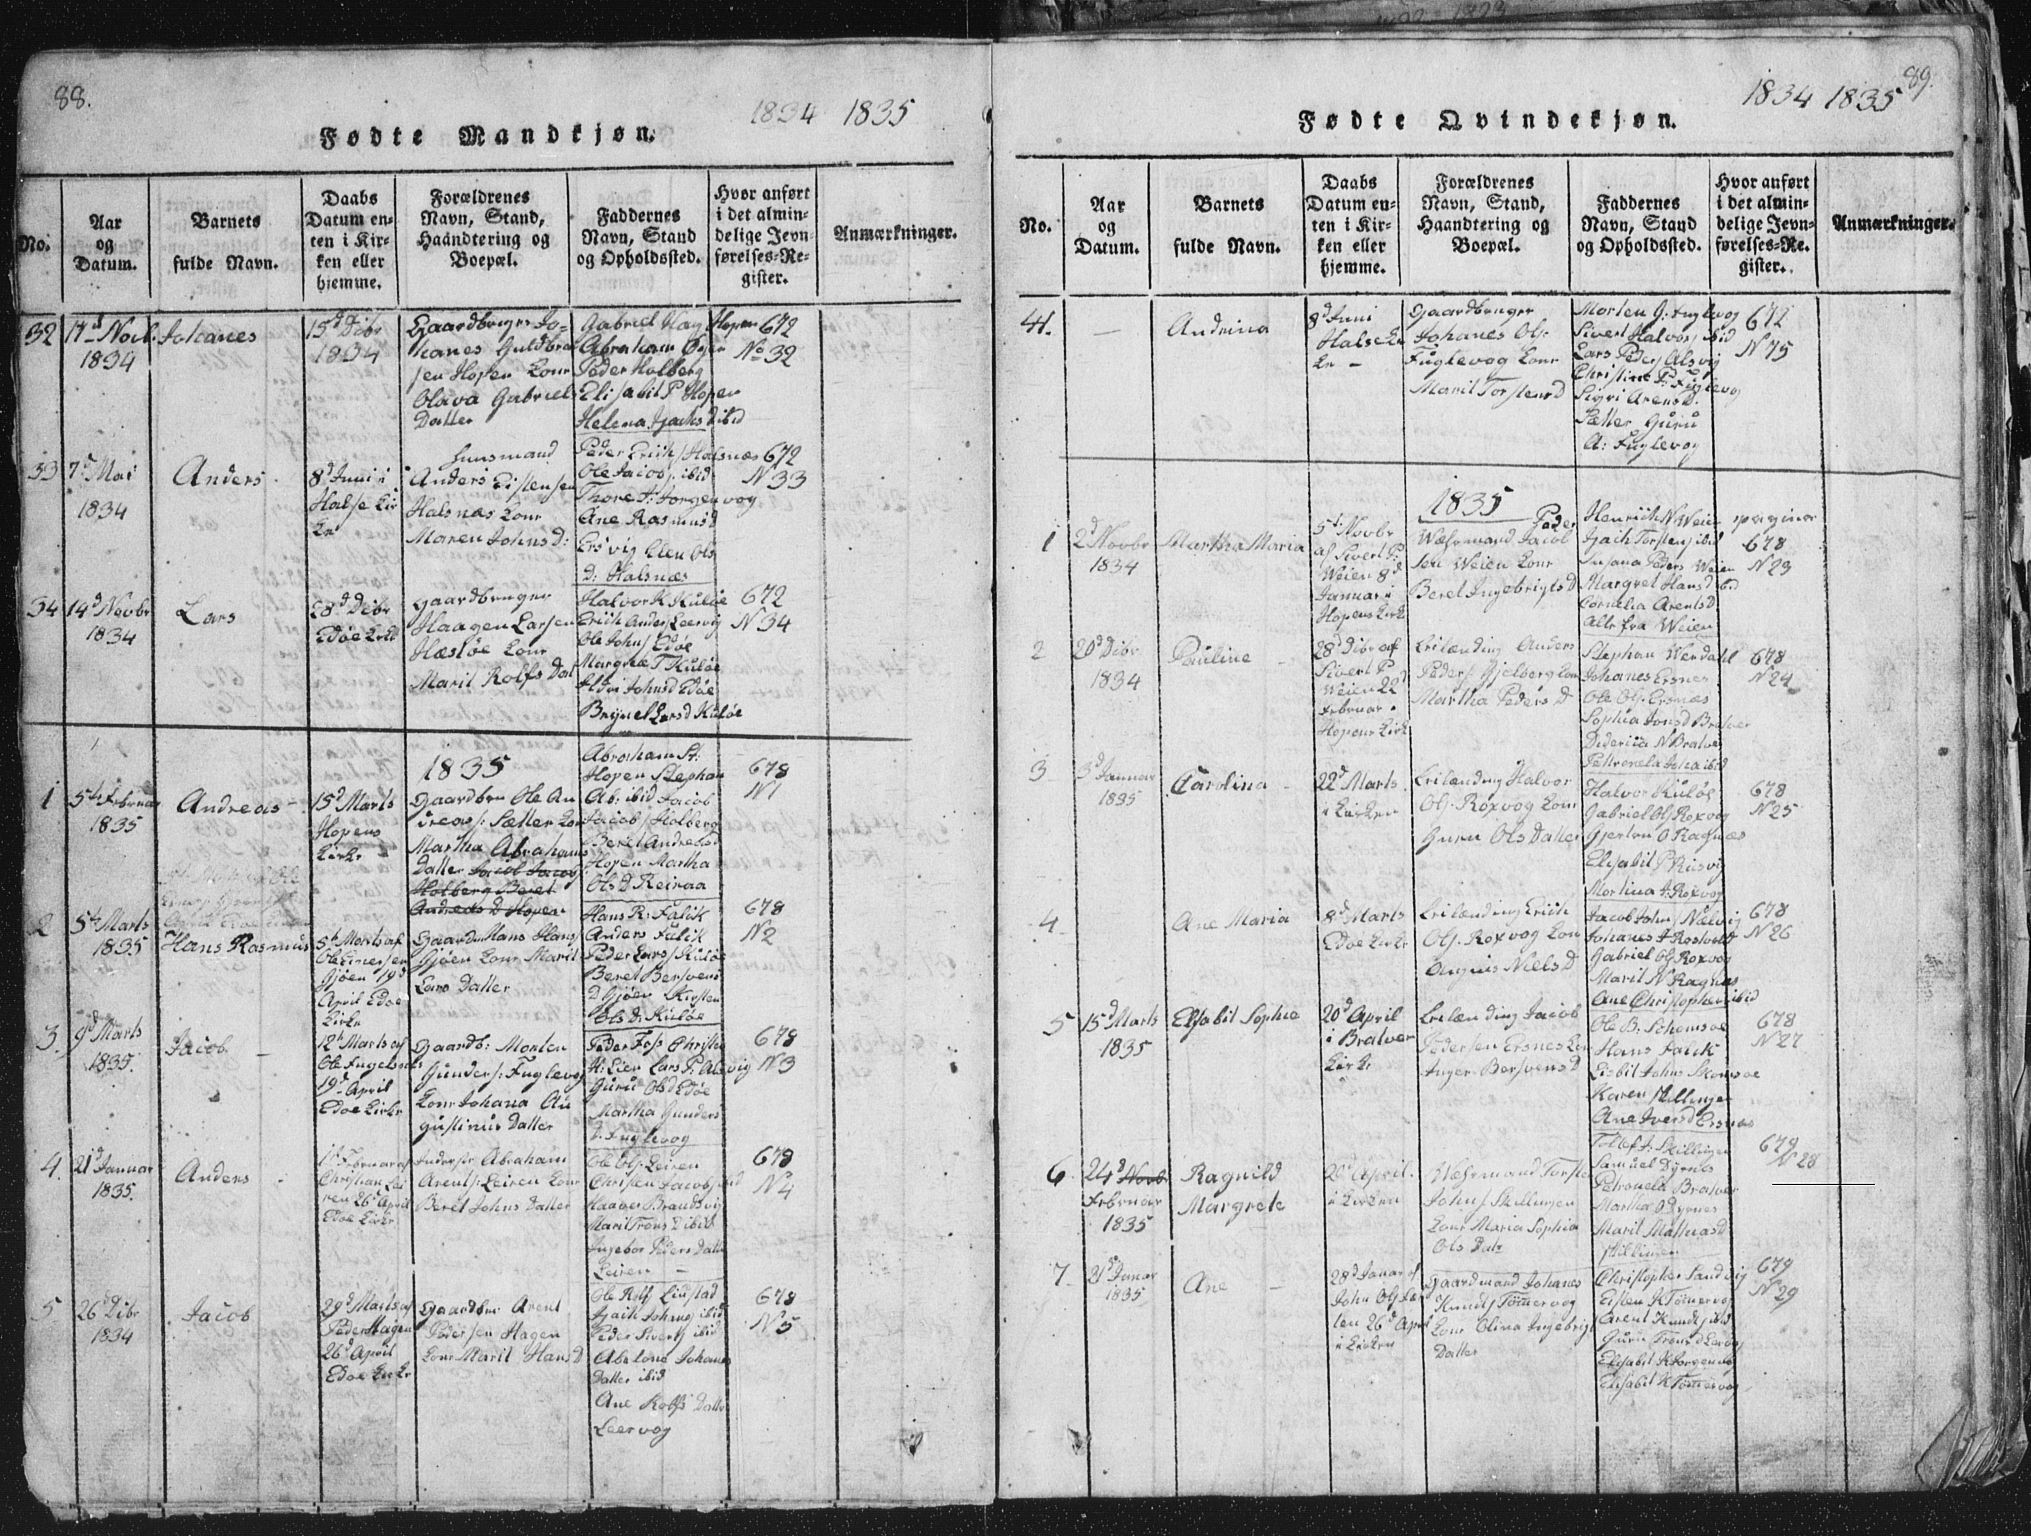 88.
1834 1835
Fødte Mandkjøn.
No.
Aar
og
Datum.
Barnets
fulde Navn.
Daabs
Datum en-
ten i Kir-
ken eller
hjemme.
Forældrenes
Navn, Stand,
Haandtering og
Boepæl.
Faddernes
Navn, Stand
og Opholdssted.
Hvor anført
i det almin-
delige Jevn-
førelses-Re-
gister.
Anmærkninger.
32
17d Novb.
1834
Johanes
15d Dcbr
1834
Gaardbruger Jo-
hanes Guldbra
sen Hopen Konr
Olava Gabriels
Datter
Gabriel Hag Hopen
Abraham
Peder Holberg
Elisabit P Hopen
Helena Jachs D ibid
672
No 32
33
7d Mai
1834
Anders
8d Juni i
Halse Kir
ke
Huusmand
Anders Eistensen
Halsnæs Konr
Maren Johns D:
Peder Erich/ Halsnæs
Ole Jacobs ibid
Thore A: Jorgenvog
Ane Rasmus D
Ersvig Elen Ols
D: Halsnæs
672
N 33
34
14d Novbr
1834
Lars
28d Dcbr
Edøe Kirke
Gaardbruger
Haagen Larsen
Hæstøe Konr
Marit Rolfs Dat
Halvor K Kuløe
Erich Anders Leervig
Ole Johns Edøe
Margrete T Kuløe
Brynel Lars D Kuløe
672
N 34
1835
1
5te Februar
1835
Andreas
15d Marts
Hopens
Kirke
Gaardbru Ole An
dreas/: Sætter Kon
Martha Abrahams
Datter Jacob Jacob
Holberg Beret
Andreas D Hopen
Abraham St:
Hopen Stephan
Ab: ibid Jacob
Jacob/ Holberg
Beret Andreas D
Hopen Martha
Ols D Reiraa
678
N 1
2
5te Marts
1835
Hans Rasmus
5te Marts af
Ole Einersen
Gjøen 19d
April Edøe
Kirke
Gaardm Hans Hans/
Gjøen Konr Marit
Lars Datter
Hans R: Falik
Anders Falik
Peder Lars/ Kuløe
Beret Bersvens
D Gjøen Kirsten
Ols D: Kuløe
678
N 2
3.
9d Marts
1835.
Jacob
12te Marts af
Ole Fugelsnes
19d April
Edøe Kirke
Gaardb: Morten
Gunders/: Fuglevog
Konr Johana Au
gustinus Datter
Peder Foss Christen
H: Lier Lars P: Alsvig
Guru Ols D Edøe
Martha Gunders
D. Fuglevog
678
N 3
4.
21d Januar
1835.
Anders
1te Februar af
Christian Lei
ren 26d April
Edøe Kirke
Inderst Abraham
Arents/: Leiren Konr
Beret Johns Datter
Ole Ols/ Leiren
Christen Jacobs ibid
Haaver Brandsvig
Marit Trons D ibid
Ingebor Peders Datter
Leiren
678
N 4
5
26d Dcbr
1834
Jacob
29d Marts af
Peder Hagen
26d April
Edøe Kirke
Gaardbr: Arent
Pedersen Hagen
Konr Marit Hans D
Ole Rolf Liestad
Jach Johns ibid
Peder Sivertz ibid
Abelone Johanes
Datter ibid
Ane Rolfs Datter
Leervog
678
N 5
89.
1834 1835
Fødte Qvindekjøn.
No.
Aar
og
Datum.
Barnets
fulde Navn.
Daabs
Datum en-
ten i Kir-
ken eller
hjemme.
Forældrenes
Navn, Stand,
Haandtering og
Boepæl.
Faddernes
Navn, Stand
og Opholdssted.
Hvor anført
i det almin-
delige Jevn-
førelses-Re-
gister.
Anmærkninger.
41.
Andrina
8d Juni
Halse Kir
ke
Gaardbruger
Johanes Ols:
Fuglevog Konr
Marit Torstens D
Morten G: Fuglevog
Sivert Halvors ibid
Lars Peders/ Alsvig
Christine P: Fuglevog
Sigri Arens D.
Sætter Guru
A: Fuglevog
672
N 75
1835
1
2d Novbr
1834
Martha Maria
5te Novbr
af Sivert P:
Weien 8d
Januar i
Hopens Kirke
Wæhrmand Jacob Peder
sen Weien Konr
Beret Ingebrigts D
Henrich N Weien
Jach Torstens ibid
Susana Peders Weien
Margret Hans D ibid
Cornelia Arents D
Alle fra Weien
pagina
678
N 23
2
20d Dcbr
1834
Pauline
28d Dcbr af
Sivert P
Weien 22d
Februar i
Hopens Kirke
Leilænding Anders
Peders/: Hjelberg Konr
Martha Peders D
Stephan Werdahl
Johanes Ersnes
Ole Ols/ Ersnes
Sophia Jons D Bratver
Dideriia N Bratver
Petronela Joha ibid
678
N 24
3
3d Januar
1835
Carolina
22d Marts
i Kirken
Leilænding Halvor
Ols/: Roxvog Konr
Guru Ols Datter
Halvor Kuløe
Gabriel Ols/ Roxvog
Gjertru O Ragnæs
Elisabit P Risvig
Martina A: Roxvog
678
N 25
4
Ane Maria
8d Marts
Edøe Kirke
Leilænding Erich
Ols/: Roxvog Konr
Niels D
Jacob John/ Nælvig
Johanes A Rostvold
Gabriel Ols/ Roxvog
Marit N Ragnæs
Ane Christopher ibid
678
N 26
5
15d Marts
1835
Elsabit Sophia
20d April
i Bratver
Kirke
Leilænding Jacob
Pedersen Ersnes Kon
Inger Bersvens D
Ole B: Schomsøe
Hans Falik
Lisbit Johns Skomsøe
Karen Skillingen
Ane Ivers D Ersnes
678
N 27
6
24d Novb
Februar
1835
Ragnild
Margrete
20d April
i Kirken
Wæhrmand Torste
Johns/ Skillingen
Konr Maria Sophia
Ols Datr
Tollef A: Skillingen
Samuel Dyrnes
Petronela Bratver
Martha O Dyrnes
Marit Mathias D
Skillingen
679
N 28
7
21d Januar
1835
Ane
28d Januar af
John Ols/
ten 26d April
i Kirken
Gaardmand Johanes
Knuds/ Tømervog
Konr Olina Ingebrigt
Datter
Christopher Sandvig
Eisten K Tømervog
Arent Knuds/ ibid
Guru Trons D
Elisabit K Jorgenvog
Elisabit K Tømervog
679
N 29